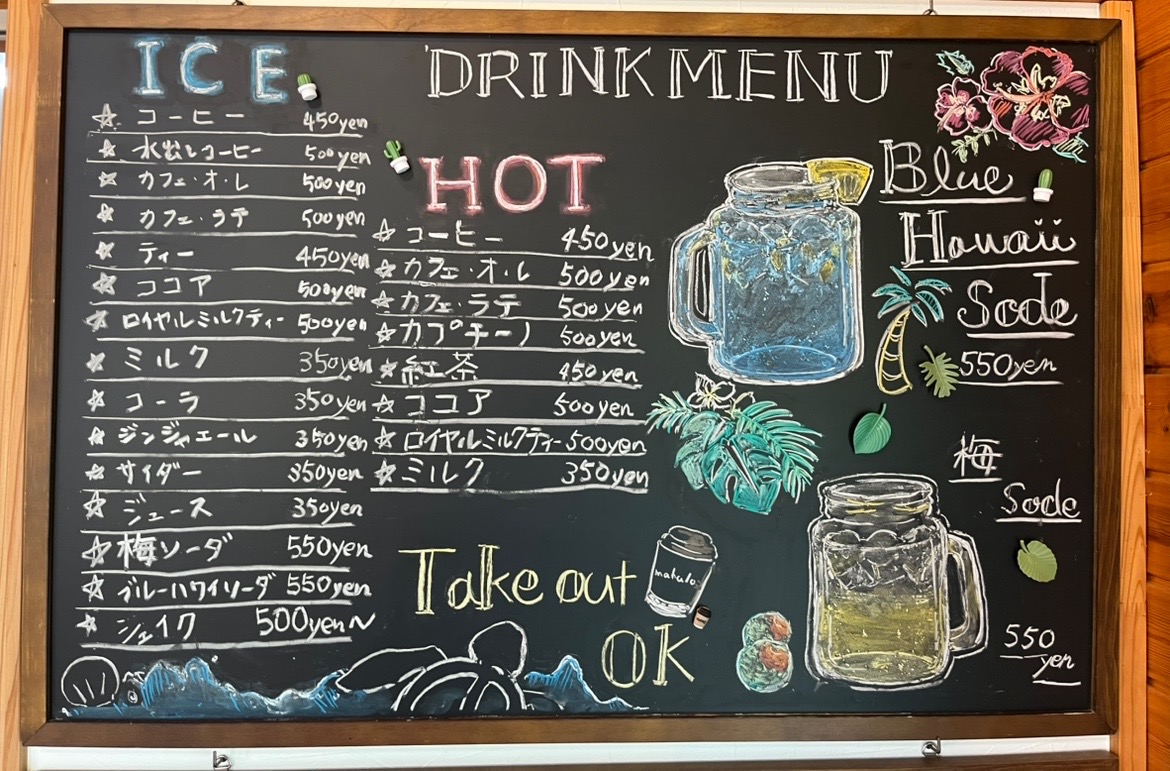 DRINK MENU
ICE
☆ コーヒー 450yen
☆ 水出しコーヒー 500yen
☆ カフェ・オ・レ 500yen
☆ カフェ・ラテ 500yen
☆ ティー 450yen
☆ ココア 500yen
☆ ロイヤルミルクティー 500yen
☆ ミルク 350yen
☆ コーラ 350yen
☆ ジンジャエール 350yen
☆ サイダー 350yen
☆ ジュース 350yen
☆ 梅ソーダ 550yen
☆ ブルーハワイソーダ 550yen
☆ シェイク 500yen〜
HOT
☆ コーヒー 450yen
☆ カフェ・オ・レ 500yen
☆ カフェ・ラテ 500yen
☆ カプチーノ 500yen
☆ 紅茶 450yen
☆ ココア 500yen
☆ ロイヤルミルクティー 500yen
☆ ミルク 350yen
Take out
OK
Blue
Hawaii
Sode
550yen
梅
Sode
550
yen